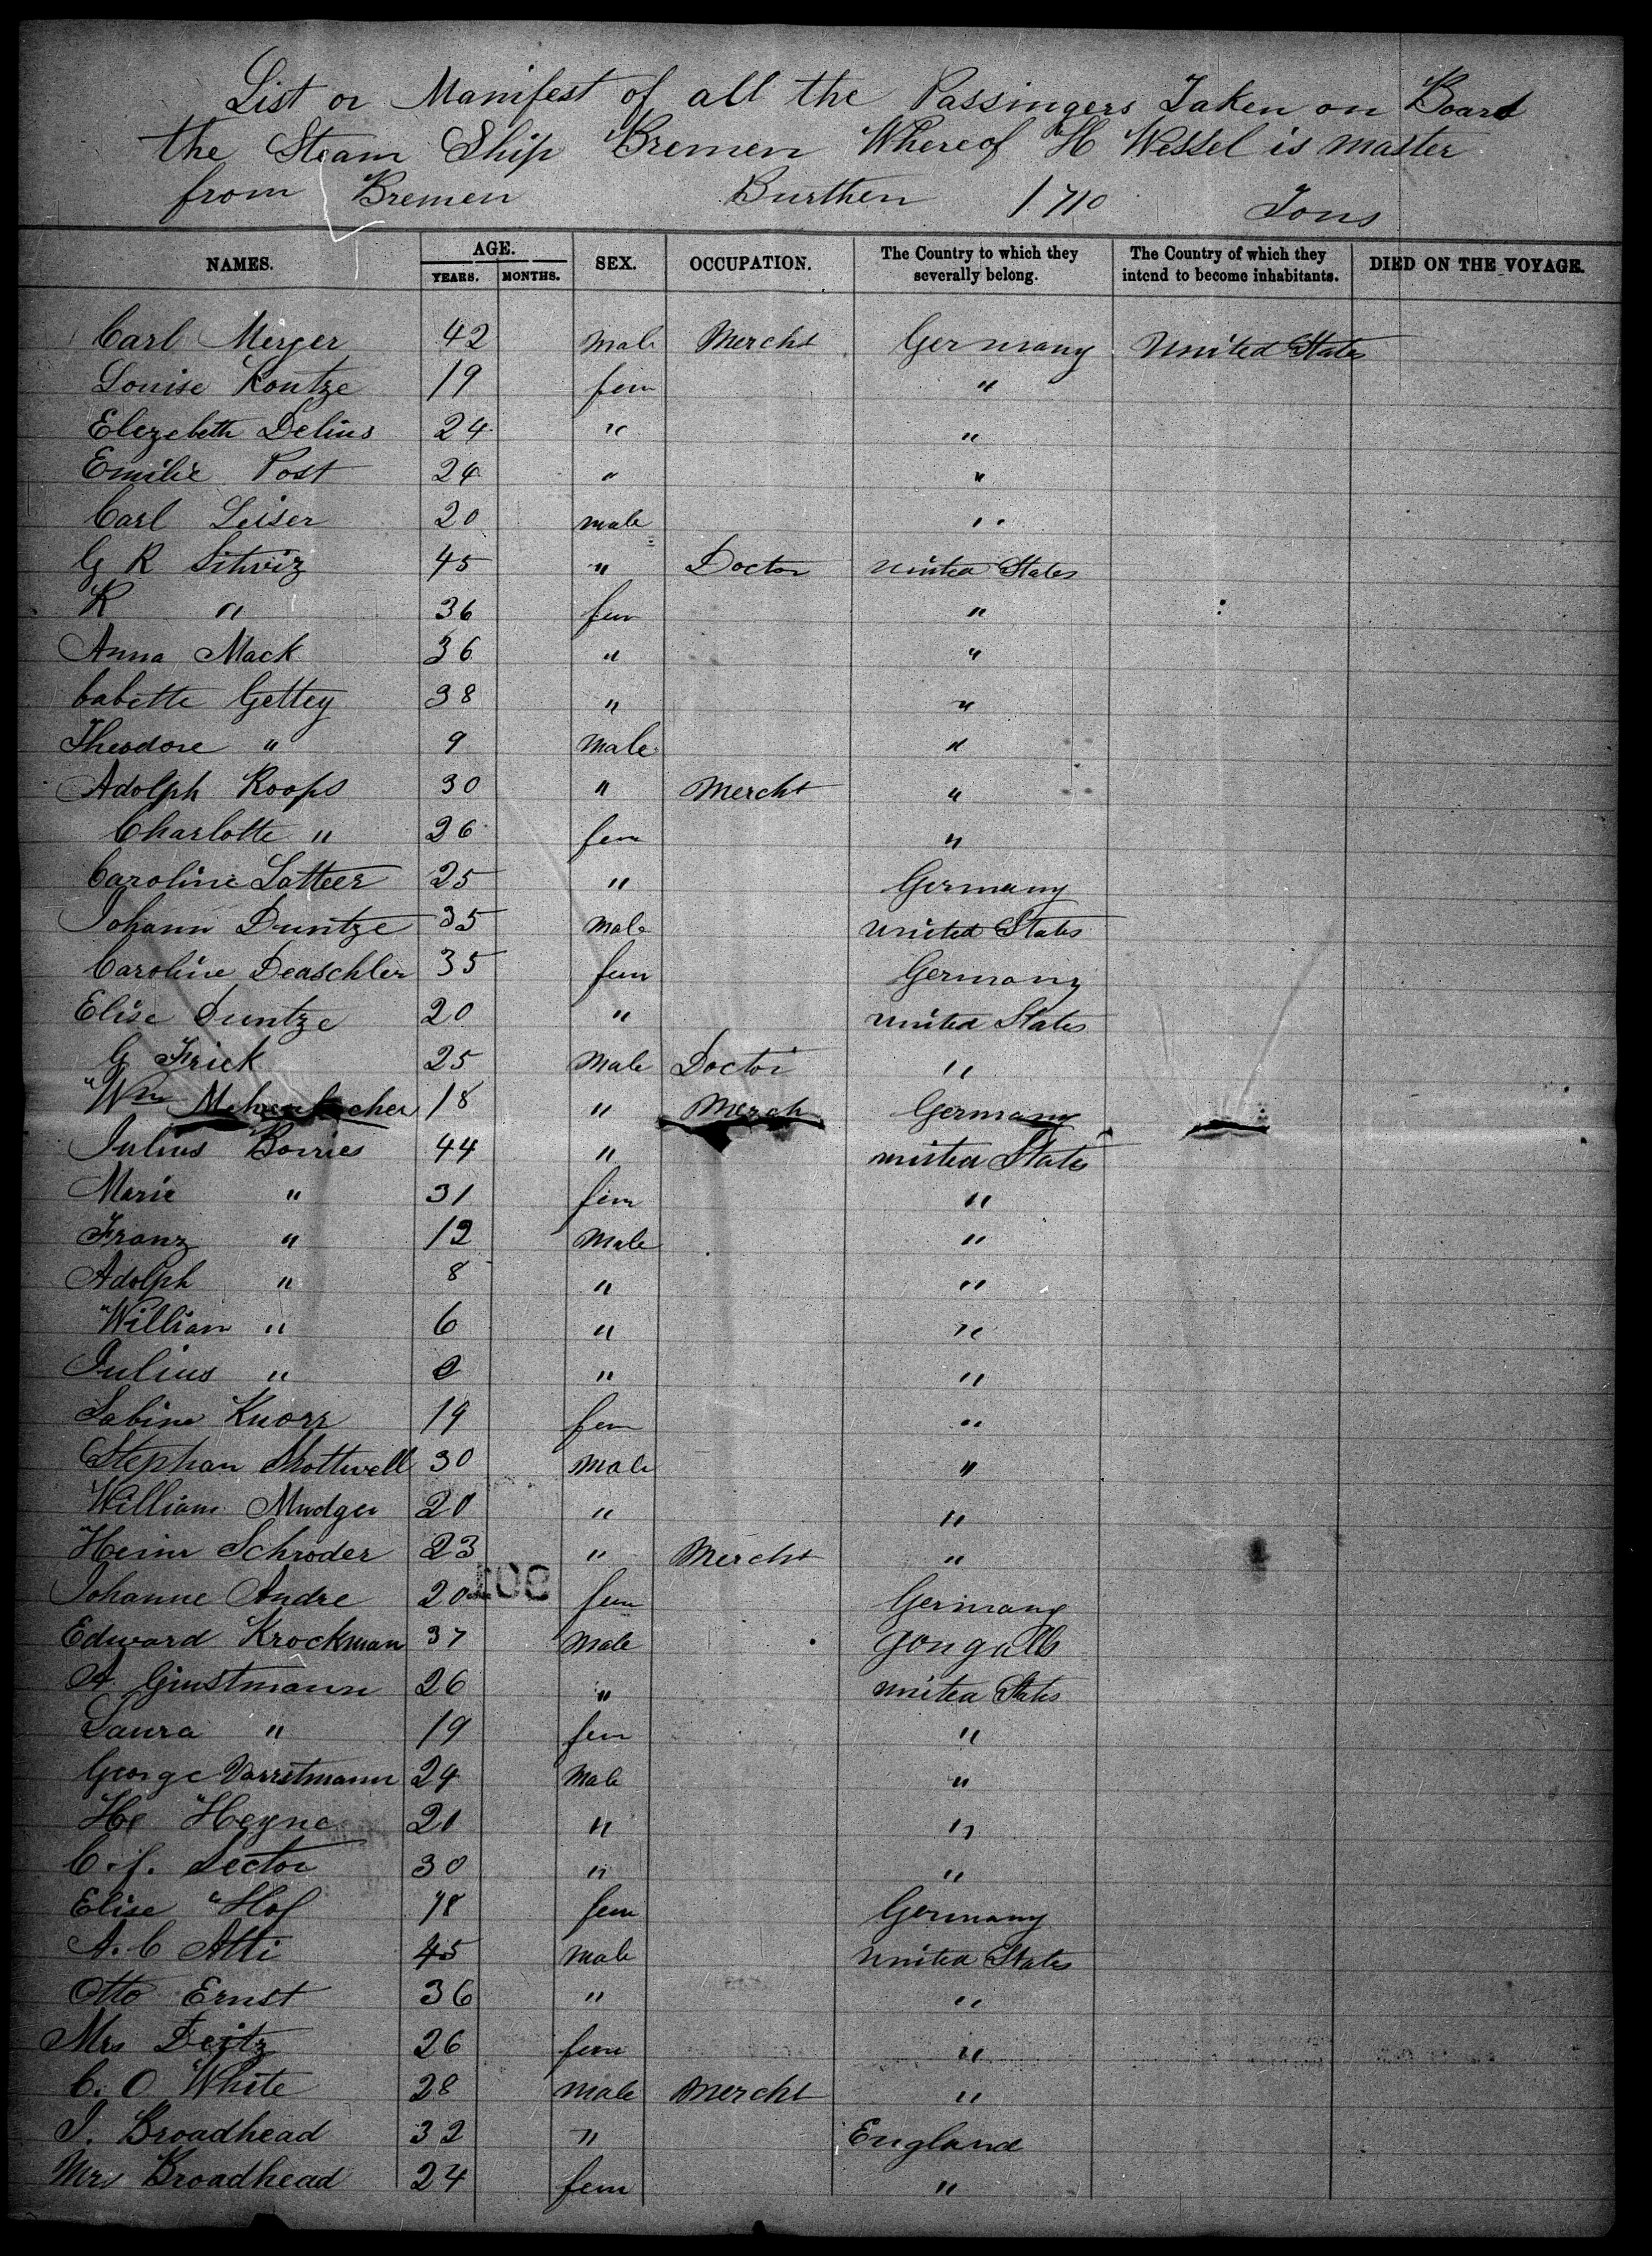 List or Manifest of all the Passingers Taken on Board
the Steam Ship Bremen Whereof H Wessel is master
from Bremen Burthen 1710 Tons
NAMES. AGE. YEARS. MONTHS. SEX. OCCUPATION. The Country to which they severally belong. The Country of which they intend to become inhabitants. DIED ON THE VOYAGE.
Carl Merger 42 male Mercht Germany United States
Louise Kontze 19 fem "
Elezebeth Delius 24 " "
Emilie Post 24 " "
Carl Leiser 20 male "
G R Sitwiz 45 " Doctor United States
K " 36 fem "
Anna Mack 36 " "
Babette Gettey 38 " "
Theodore " 9 Male "
Adolph Koops 30 " Mercht "
Charlotte " 26 fem "
Caroline Latteer 25 " Germany
Johann Duntze 35 Male United States
Caroline Deaschler 35 fem Germany
Elise Duntze 20 " United States
G Frick 25 Male Doctor "
Wm 18 " Merch Germany
Julius Borries 44 " United States
Marie " 31 fem "
Franz " 12 Male "
Adolph " 8 " "
William " 6 " "
Julius " 2 " "
Sabine Knorr 19 fem "
Stephan Shottwell 30 Male "
William Mudger 20 " "
Heinr Schroder 23 " Mercht "
Johanne Andre 20 fem Germany
Edward Krockman 37 Male
A Giustmann 26 " United States
Laura " 19 fem "
George Varretmann 24 Male "
He Heyne 21 " "
C. f. Sector 30 " "
Elise Hof 18 fem Germany
A. C Atti 45 Male United States
Otto Ernst 36 " "
Mrs Deitz 26 fem "
C. O White 28 Male Mercht "
J. Broadhead 32 " England
Mrs Broadhead 24 fem "